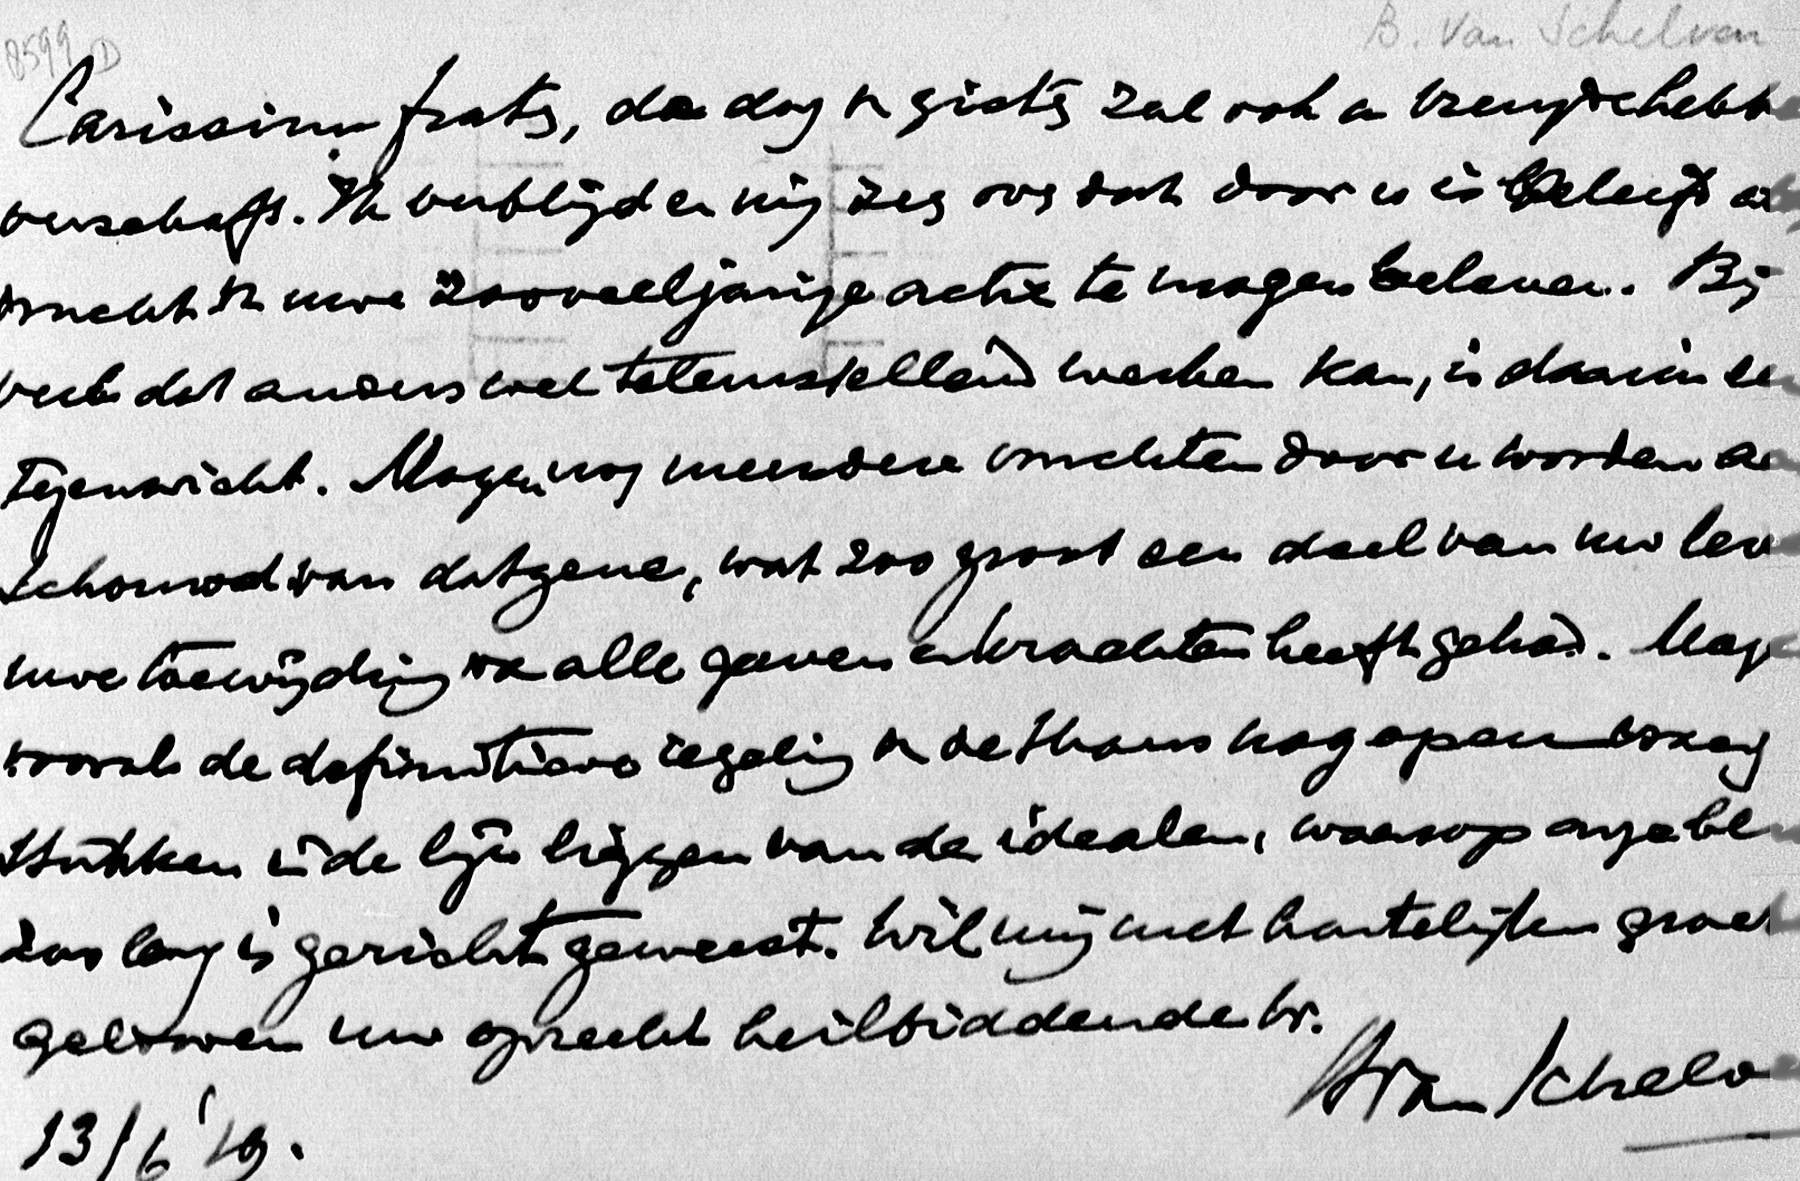 8599 D
B. Van Schelven
Carissime frater, de dag v gister zal ook u vreugde hebb
verschaft. Ik verblijd er mij zeg dat door u is beleefd
vrucht v uwe zooveeljarige actie te mogen beleven. Bij
veel dat anders wel teleurstellend werken kan, is daarin een
tegenwicht. Mogen nog meerdere vruchten door u worden aa
schouwd van datgene, wat zoo groot een deel van uw lev
uwe toewijding van alle gaven en krachten heeft gehad. Moge
vooral de definitieve regeling v de thans nog open
stukken in de lijn liggen van de idealen, waarop onze bl
zoo lang is gericht geweest. Wil mij met hartelijken groet
gelooven uw oprecht heilbiddende br.
BVan Schelv
13/6 '19.